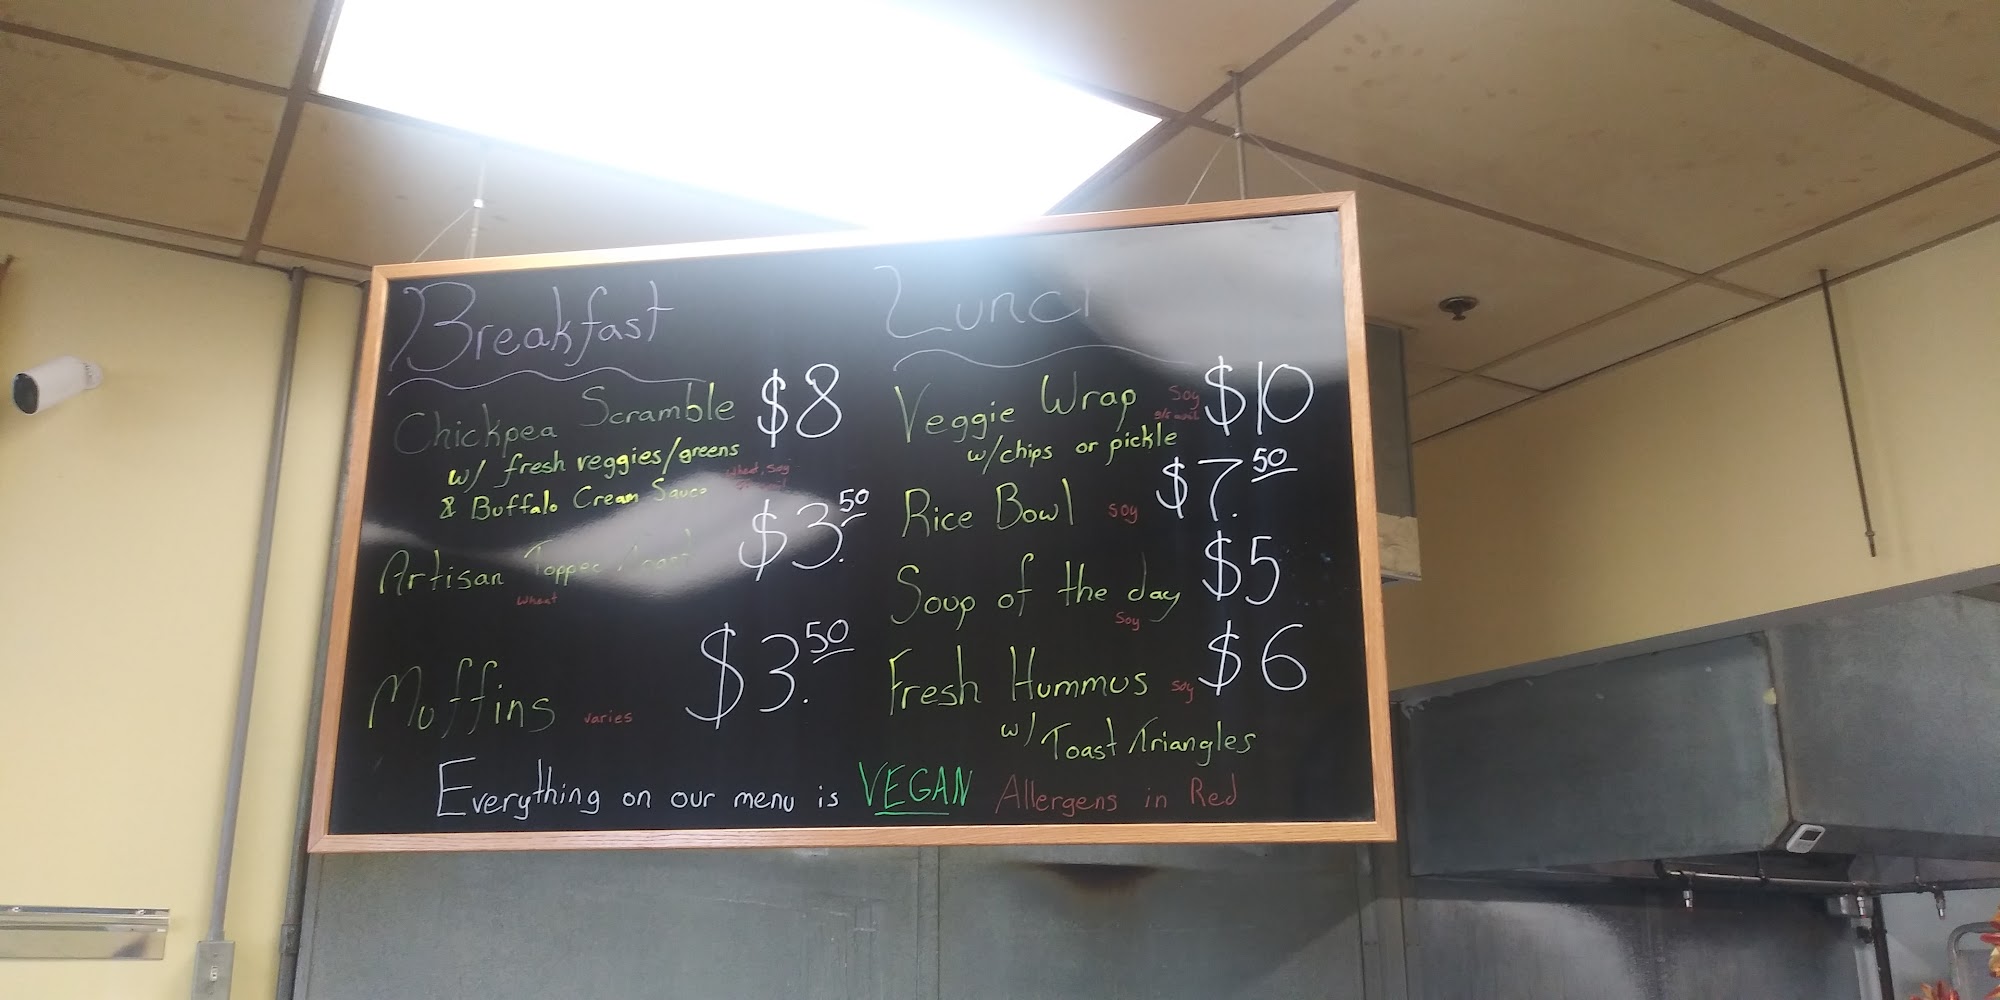 Breakfast
Chickpea Scramble $8
w/ fresh veggies/greens
& Buffalo Cream Sauce
wheat, soy
Artisan Topped Toast $3.50
wheat
Muffins varies $3.50
Lunch
Veggie Wrap soy $10
g/f avail
w/chips or pickle
Rice Bowl soy $7.50
Soup of the day $5
Soy
Fresh Hummus soy $6
w/ Toast Triangles
Everything on our menu is VEGAN Allergens in Red